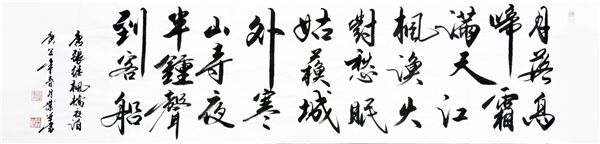 月落烏
啼霜
滿天江
楓漁火
對愁眠
姑蘓城
外寒
山寺夜
半鍾聲
到客船
唐張继楓橋夜泊
庚年春月書